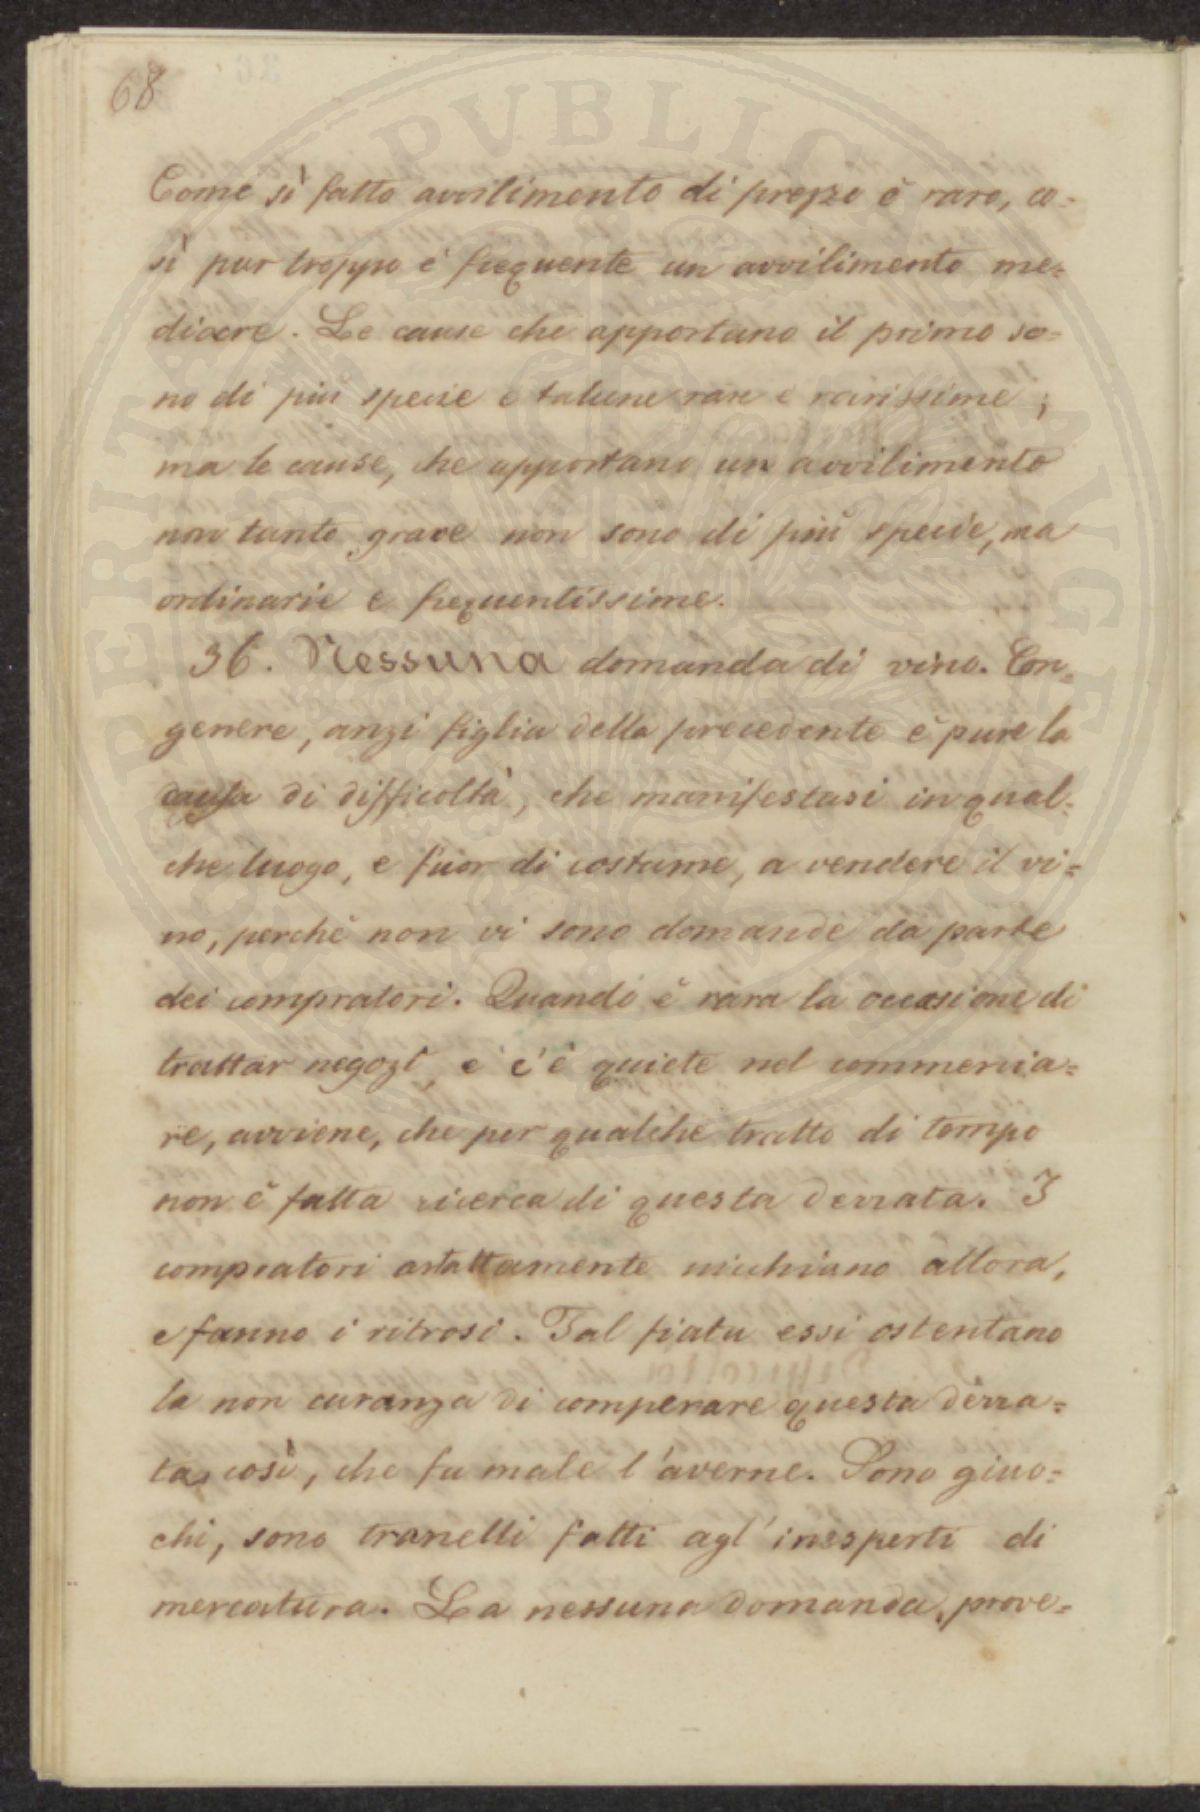 68
Come sì fatto avvilimento di prezzo è raro, co=
sì pur troppo è frequente un avvilimento me=
diocre. Le cause che apportano il primo so=
no di più specie e talune rare e rarissime;
ma le cause, che apportano un avvilimento
non tanto grave non sono di più specie, ma
ordinarie e frequentissime.
36. Nessuna domanda di vino. Con=
genere, anzi figlia della precedente è pure la
causa di difficoltà, che manifestasi in qual=
che luogo, e fuor di costume, a vendere il vi=
no, perchè non vi sono domande da parte
dei compratori. Quando è rara la occasione di
trattar negozî, e c'è quiete nel commercia=
re, avviene, che per qualche tratto di tempo
non è fatta ricerca di questa derrata. I
compratori astattamente nicchiano allora,
e fanno i ritrosi. Tal fiata essi ostentano
la non curanza di comperare questa derra=
ta così, che fa male l'averne. Sono giuo=
chi, sono tranelli fatti agl'inesperti di
mercatura. La nessuna domanda, prove=
PERITAT PVBLICAE AVGENDAE